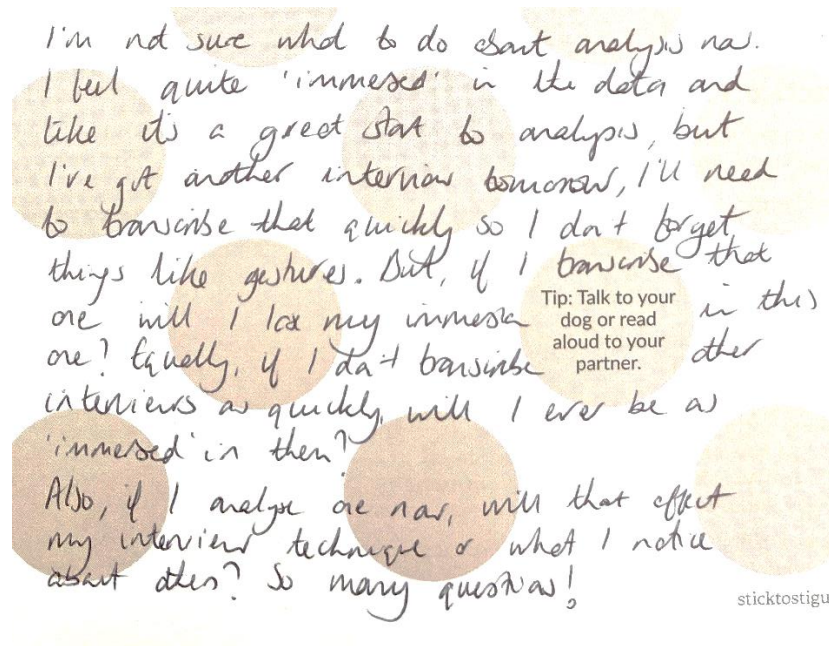 I'm not sure what to do about analysis now.
I feel quite 'immersed' in the data and
like it's a great start to analysis, but
I've got another interview tomorrow, I'll need
to transcribe that quickly so I don't forget
things like gestures. But, if I transcribe that
one will I lose my immersion in this
one? Equally, if I don't transcribe other
interviews as quickly, will I ever be as
'immersed' in them?
Also, if I analyse one now, will that effect
my interview technique or what I notice
about others? So many questions!
Tip: Talk to your
dog or read
aloud to your
partner.
sticktostigu